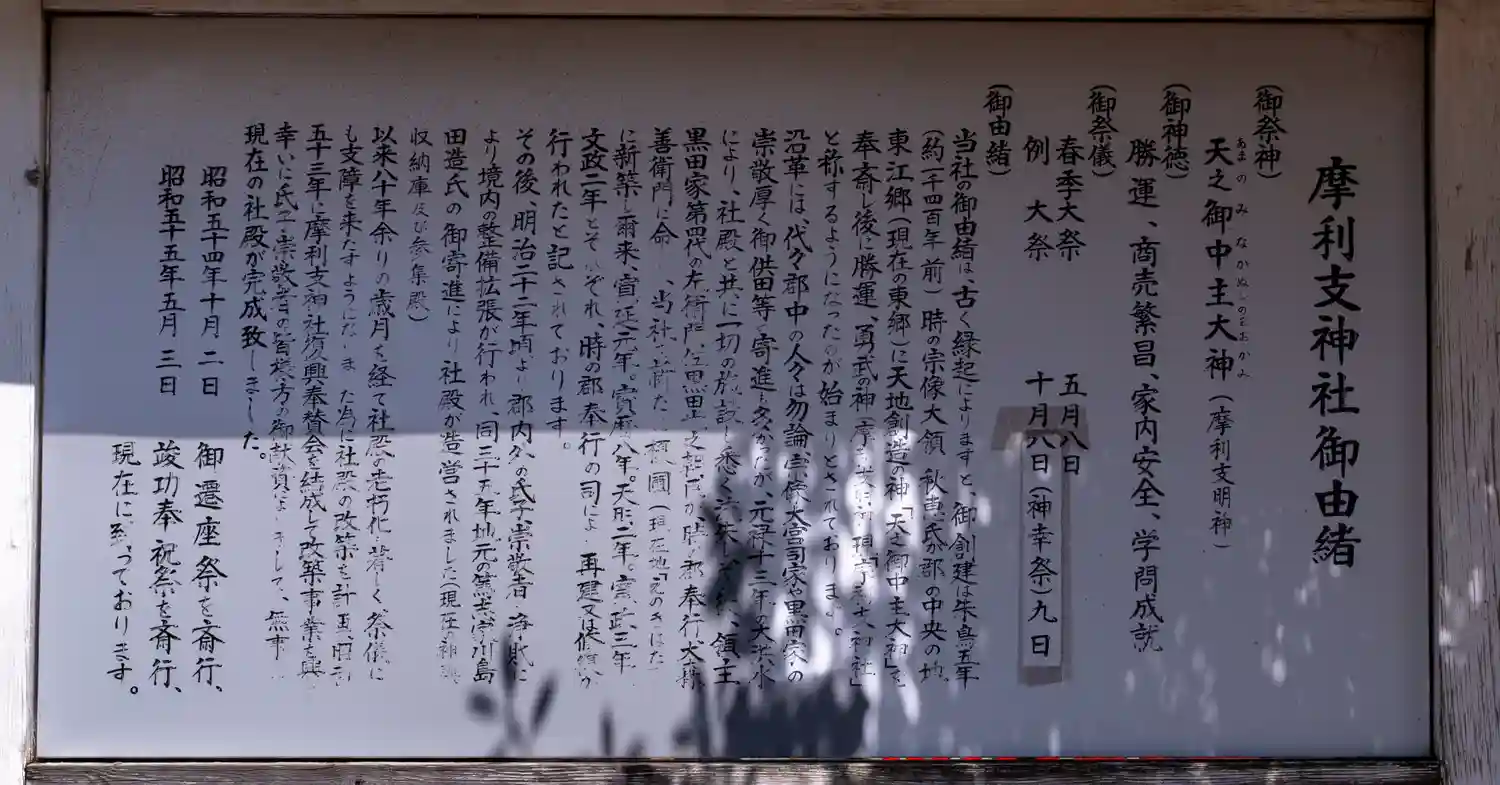 摩利支神社御由緒
(御祭神)
天之御中主大神(摩利支明神)
あまの み なかぬしのおおかみ
(御神徳)
勝運、商売繁昌、家内安全、学問成就
(御祭儀)
春季大祭 五月八日
例大祭 十月八日(神幸祭)九日
(御由緒)
当社の御由緒は、古く縁起によりますと、御創建は朱鳥五年
(約一千四百年前)時の宗像大領 秋 氏が郡の中央の地、
東江郷(現在の東郷)に天地創造の神「天之御中主大神」を
奉斎し後に勝運、勇武の神(摩利支明神 神社」
と称するようになったのが始まりとされております。
沿革には、代々郡中の人々は勿論、宗像大宮司家や黒田家の
崇敬厚く御供田等も寄進も多かったが、元禄十三年の大洪水
により、社殿と共に一切の施設も悉く 領主
黒田家第四代の左衛門佐 郡奉行
善衛門に命 当社を新た (現在地「えのきはた
に新築し爾来、宝延元年。宝暦八年。天明二年。寛政三年
文政二年とそれぞれ、時の郡奉行の司によ 再建又は修復が
行われたと記されております。
その後、明治二十二年頃より郡内外の氏子、崇敬者 に
より境内の整備拡張が行われ、同三十五年地元の篤志 川島
田造氏の御寄進により社殿が造営されました(現在の神
収納庫及び参集殿)
以来八十年余りの歳月を経て社殿の老朽化 著しく、祭儀に
も支障を来たすようになりま た為に社殿の改築を計画、昭和
五十三年に摩利支神社復興奉賛会を結成して改築事業を興
幸いに氏子・崇敬者の皆様方の御 して、無事
現在の社殿が完成致しました。
昭和五十四年十月二日 御遷座祭を斎行、
昭和五十五年五月三日 竣功奉祝祭を斎行、
現在に到っております。